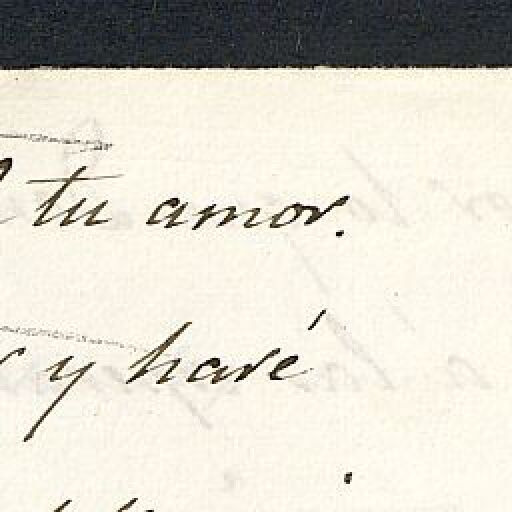 tu amor.
y haré